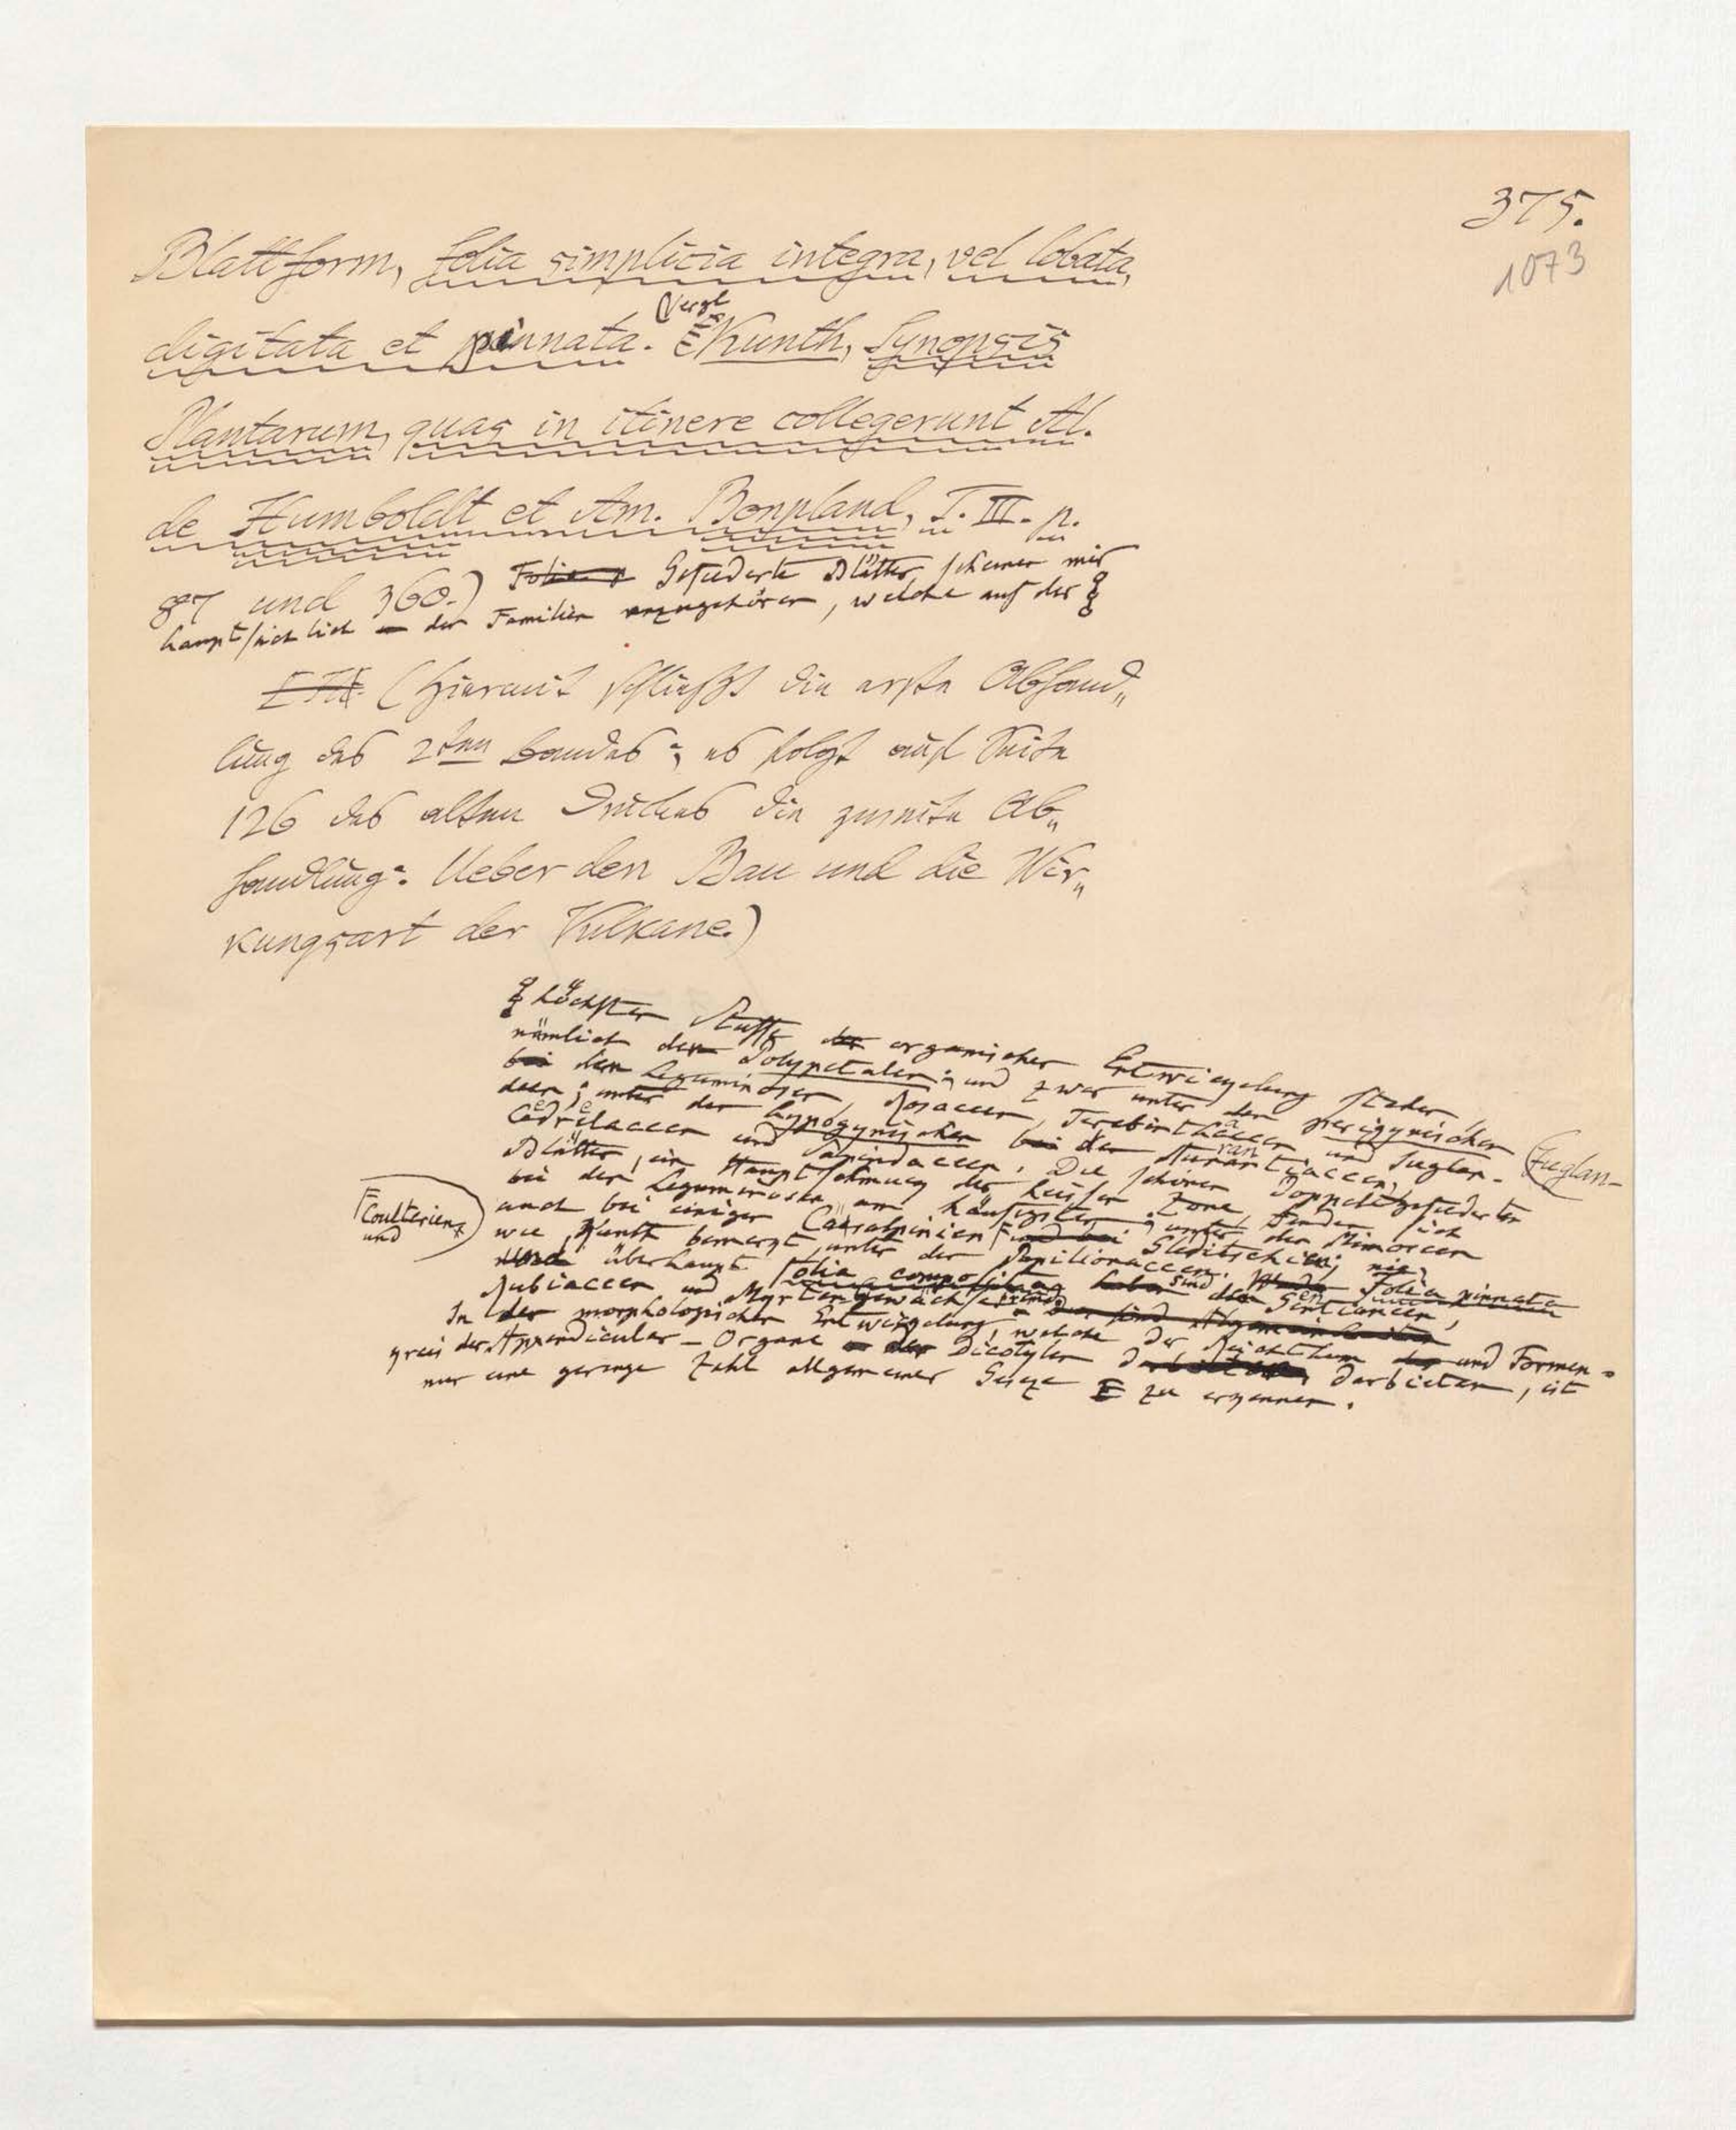 375.
1073
Blattform, folia simplicia integra, vel lobata,
digitata et pinnata. (Vergl Kunth, Synopsis
Plantarum, quas in itinere collegerunt Al.
de Humboldt et Am. Bonpland, T. III. p.
87 und 360.) Gefiederte Blätter scheinen mir
hauptsächlich den Familien anzugehören, welche auf der
(Hiermit schließt die erste Abhand„
lung des 2ten Bandes; es folgt auf Seite
126 des alten Druckes die zweite Ab„
handlung: Ueber den Bau und die Wir„
kungsart der Vulkane.)
höchsten Stuffe organischer Entwickelung stehen
nämlich den Polypetalen; und zwar unter den perigynischen
den Leguminosen, Rosaceen, Terebinthaceen und Juglan-
deen; unter den hypogynischen den Aurantiaceen,
Cedrelaceen und Sapindaceen. Die schönen doppeltgefiederten
Blätter, ein Hauptschmuck der heißen Zone, finden sich
bei den Leguminosen am häufigsten, unter den Mimoseen
auch bei einigen Caesalpinien Coulterien und Gleditschien; nie
wie Kunth bemerkt unter den Papilionaceen. Folia pinnata
und überhaupt folia composita sind den Gentianeen,
Rubiaceen und Myrtengewächsen fremd
In der morphologischen Entwickelung, welche der Reichthum und Formen-
kreis der Appendicular-Organe Dicotylen darbieten, ist
nur eine geringe Zahl allgemeiner Geseze zu erkennen.